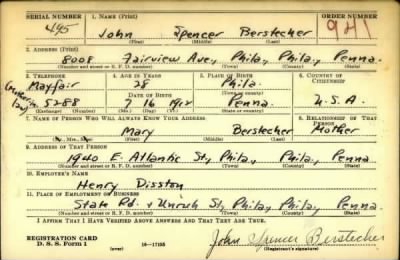 SERIAL NUMBER 1. NAME (Print) ORDER NUMBER
495 John Spencer Berstecher 941
(First) (Middle) (Last)
2. ADDRESS (Print)
8008 Fairview Ave, Phila, Phila, Penna.
(Number and street or R. F. D. number) (Town) (County) (State)
3. TELEPHONE 4. AGE IN YEARS 5. PLACE OF BIRTH 6. COUNTRY OF CITIZENSHIP
Mayfair 28 Phila.
DATE OF BIRTH (Town or county)
5288 7 16 1912 Penna. U.S.A.
(Mo.) (Day) (Yr.) (State or country)
7. NAME OF PERSON WHO WILL ALWAYS KNOW YOUR ADDRESS 8. RELATIONSHIP OF THAT PERSON
Mary Berstecher Mother
(First) (Middle) (Last)
9. ADDRESS OF THAT PERSON
1940 E. Atlantic St, Phila, Phila, Penna
(Number and street or R. F. D. number) (Town) (County) (State)
10. EMPLOYER'S NAME
Henry Disston
11. PLACE OF EMPLOYMENT OR BUSINESS
State Rd. & Unruh St, Phila, Phila, Penna.
(Number and street or R. F. D. number) (Town) (County) (State)
I AFFIRM THAT I HAVE VERIFIED ABOVE ANSWERS AND THAT THEY ARE TRUE.
REGISTRATION CARD
D. S. S. Form 1 (over) 16—17105 John Spencer Berstecher
(Registrant's signature)